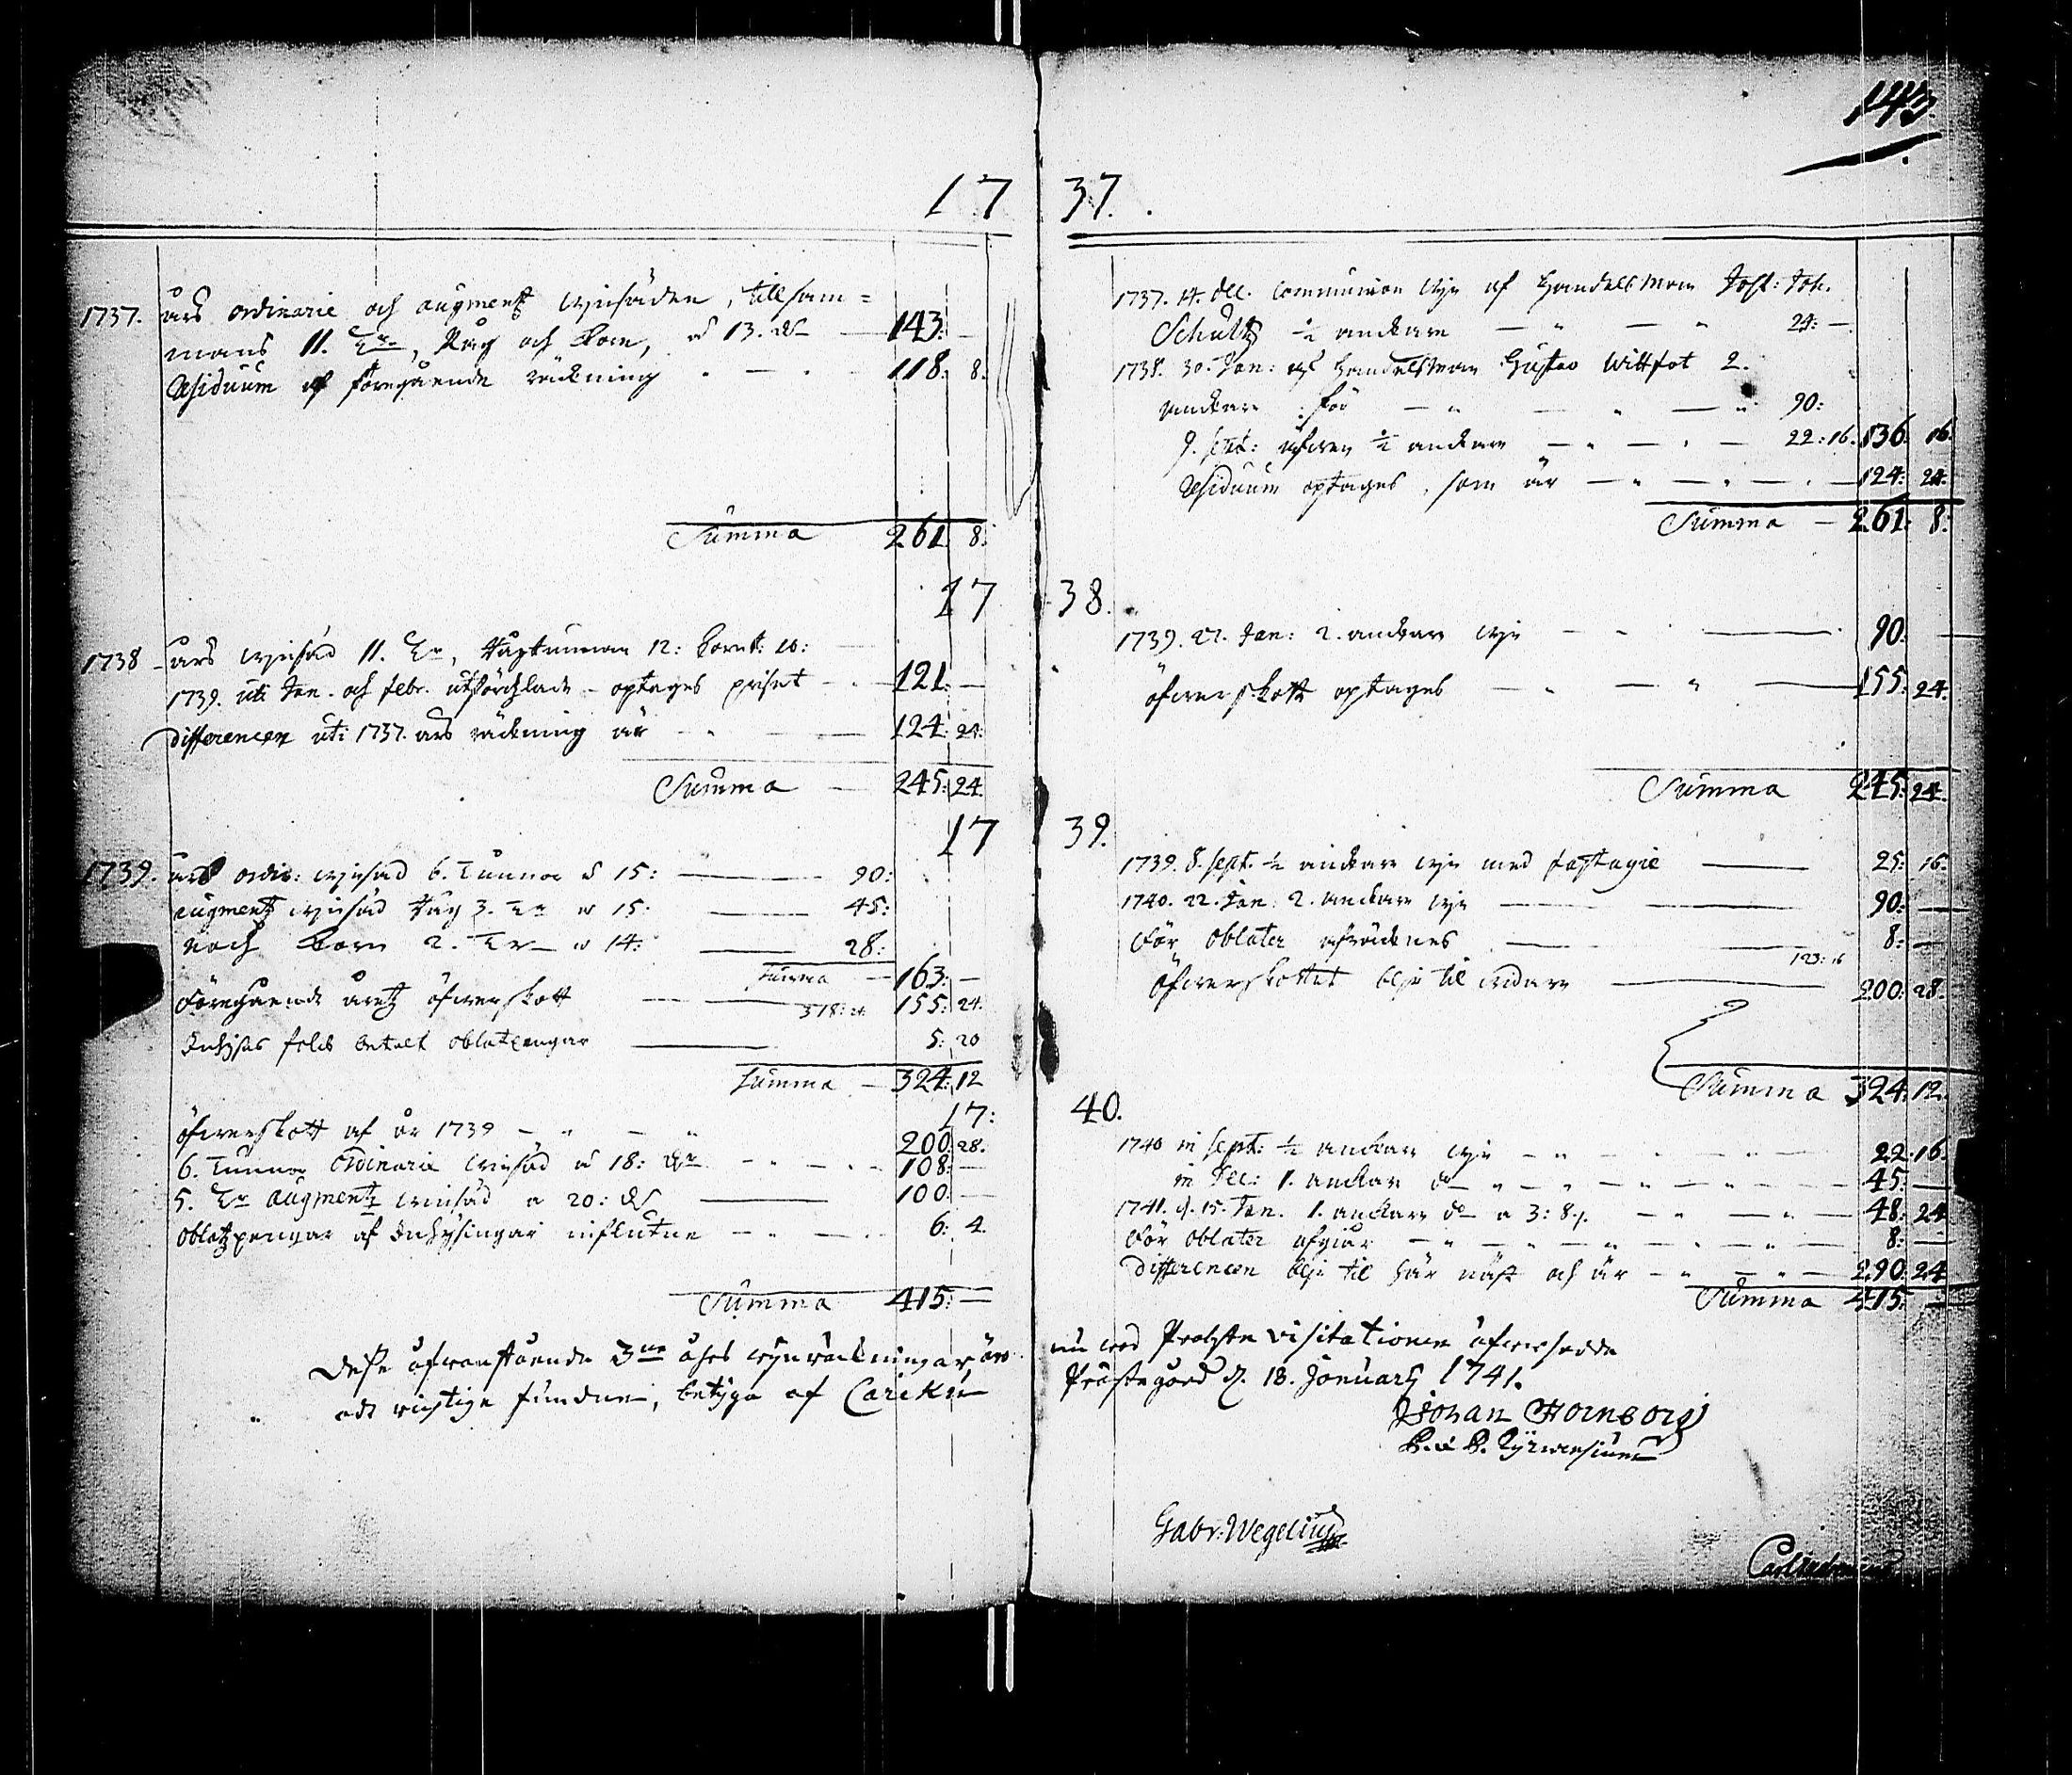 143.
1737.
1737. åhrs ordinarie och augmentz wijnsäden, tillsam=
mans 11. Tr, Råg och Korn, á 13. dlr — 143: —
Residuum af föregående räckning — 118: 8.
Summa 261 8:
1737. 14. dec. Communion wijn af Handelsman Jost: Joh.
Schultz ½ anckare — 24: —
1738. 30. Jan: af Handelsman Gustav Wittfot 2.
anckare för — 90:
9. sept: äfwen ½ anckare — 22: 16. 136 16.
Residuum optages, som är — 124: 24.
Summa — 261: 8:
1738.
1738 åhrs wijnsäd 11. Tr, Rågtunnan 12: Kornt: 10:
1739. uti Jan. och febr. optages priset — 121: —
differencen uti 1737. års räckning är — 124: 24:
Summa — 245: 24.
1739. 27. Jan: 2. anckare wijn — 90: —
öfwerskott optages — 155: 24.
Summa 245: 24.
1739.
1739. åhrs ordin: wijnsäd 6. Tunnor á 15: — 90:
augmentz wijnsäd Råg 3. Tr á 15: — 45:
noch Korn 2. Tr á 14: — 28:
Summa — 163: —
Föregående åretz öfwerskott — 318: 24. 155: 24.
Inhyses folck betalt oblatpengar — 5: 20
Summa — 324: 12
1739. 8. sept. ½ anckare wijn med fastagie — 25: 16.
1740. 22. Jan: 2. anckare wijn — 90: —
För oblater afräcknes — 8: —
123: 16
Öfwerskottet blir til widare — 200: 28.
Summa 324: 12.
17:40.
öfwerskott af år 1739 — 200: 28.
6. Tunnor Ordinarie wijnsäd á 18: dlr — 108: —
5. Tr augmentz wijnsäd a 20: dlr — 100: —
Oblatzpengar af Inhysingar influtne — 6: 4.
Summa 415: —
1740 in sept: ½ anckare wijn — 22: 16.
in Dec: 1. anckar do — 45: —
1741. d. 15. Jan. 1. anckare do a 3: 8 — 48: 24
För Oblater afgiår — 8: —
Differencen blir til här näst och är — 290: 24
Summa 415: —
Desse ofwanstående 3ne åhrs wijnräckningar äro nu wed Probste visitationen öfwersedde
och richtige fundne, betyga af Cariku Prästegård d. 18. Januarij 1741.
Johan Hornborg
Gabr: Wegelius